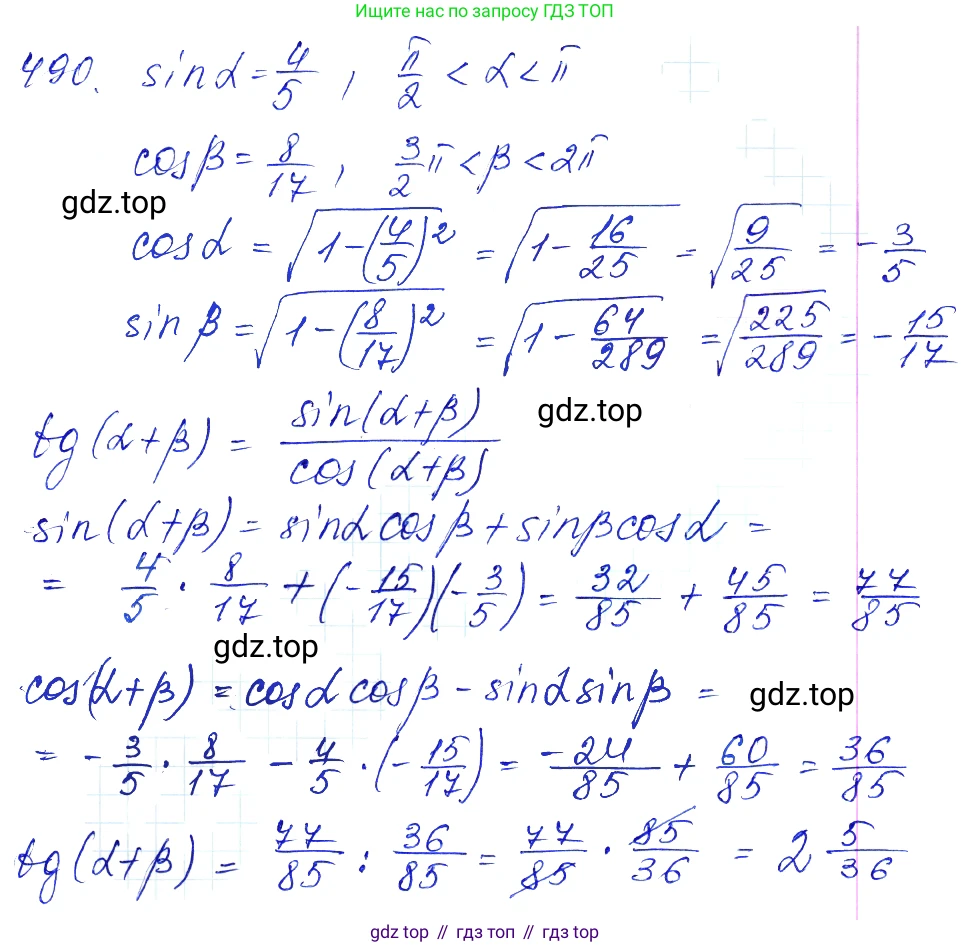 Ищите нас по запросу ГДЗ ТОП
490. sinα = 4/5 , π/2 < α < π
cosβ = 8/17 , 3/2 π < β < 2π
gdz.top
cosα = √(1-(4/5)²) = √(1-16/25) = √(9/25) = -3/5
sinβ = √(1-(8/17)²) = √(1-64/289) = √(225/289) = -15/17
gdz.top
tg(α+β) = sin(α+β)/cos(α+β)
sin(α+β) = sinα cosβ + sinβ cosα =
= 4/5 · 8/17 + (-15/17)(-3/5) = 32/85 + 45/85 = 77/85
gdz.top
cos(α+β) = cosα cosβ - sinα sinβ =
gdz.top
= -3/5 · 8/17 - 4/5 · (-15/17) = -24/85 + 60/85 = 36/85
tg(α+β) = 77/85 : 36/85 = 77/85 · 85/36 = 2 5/36
gdz.top // гдз топ // gdz top